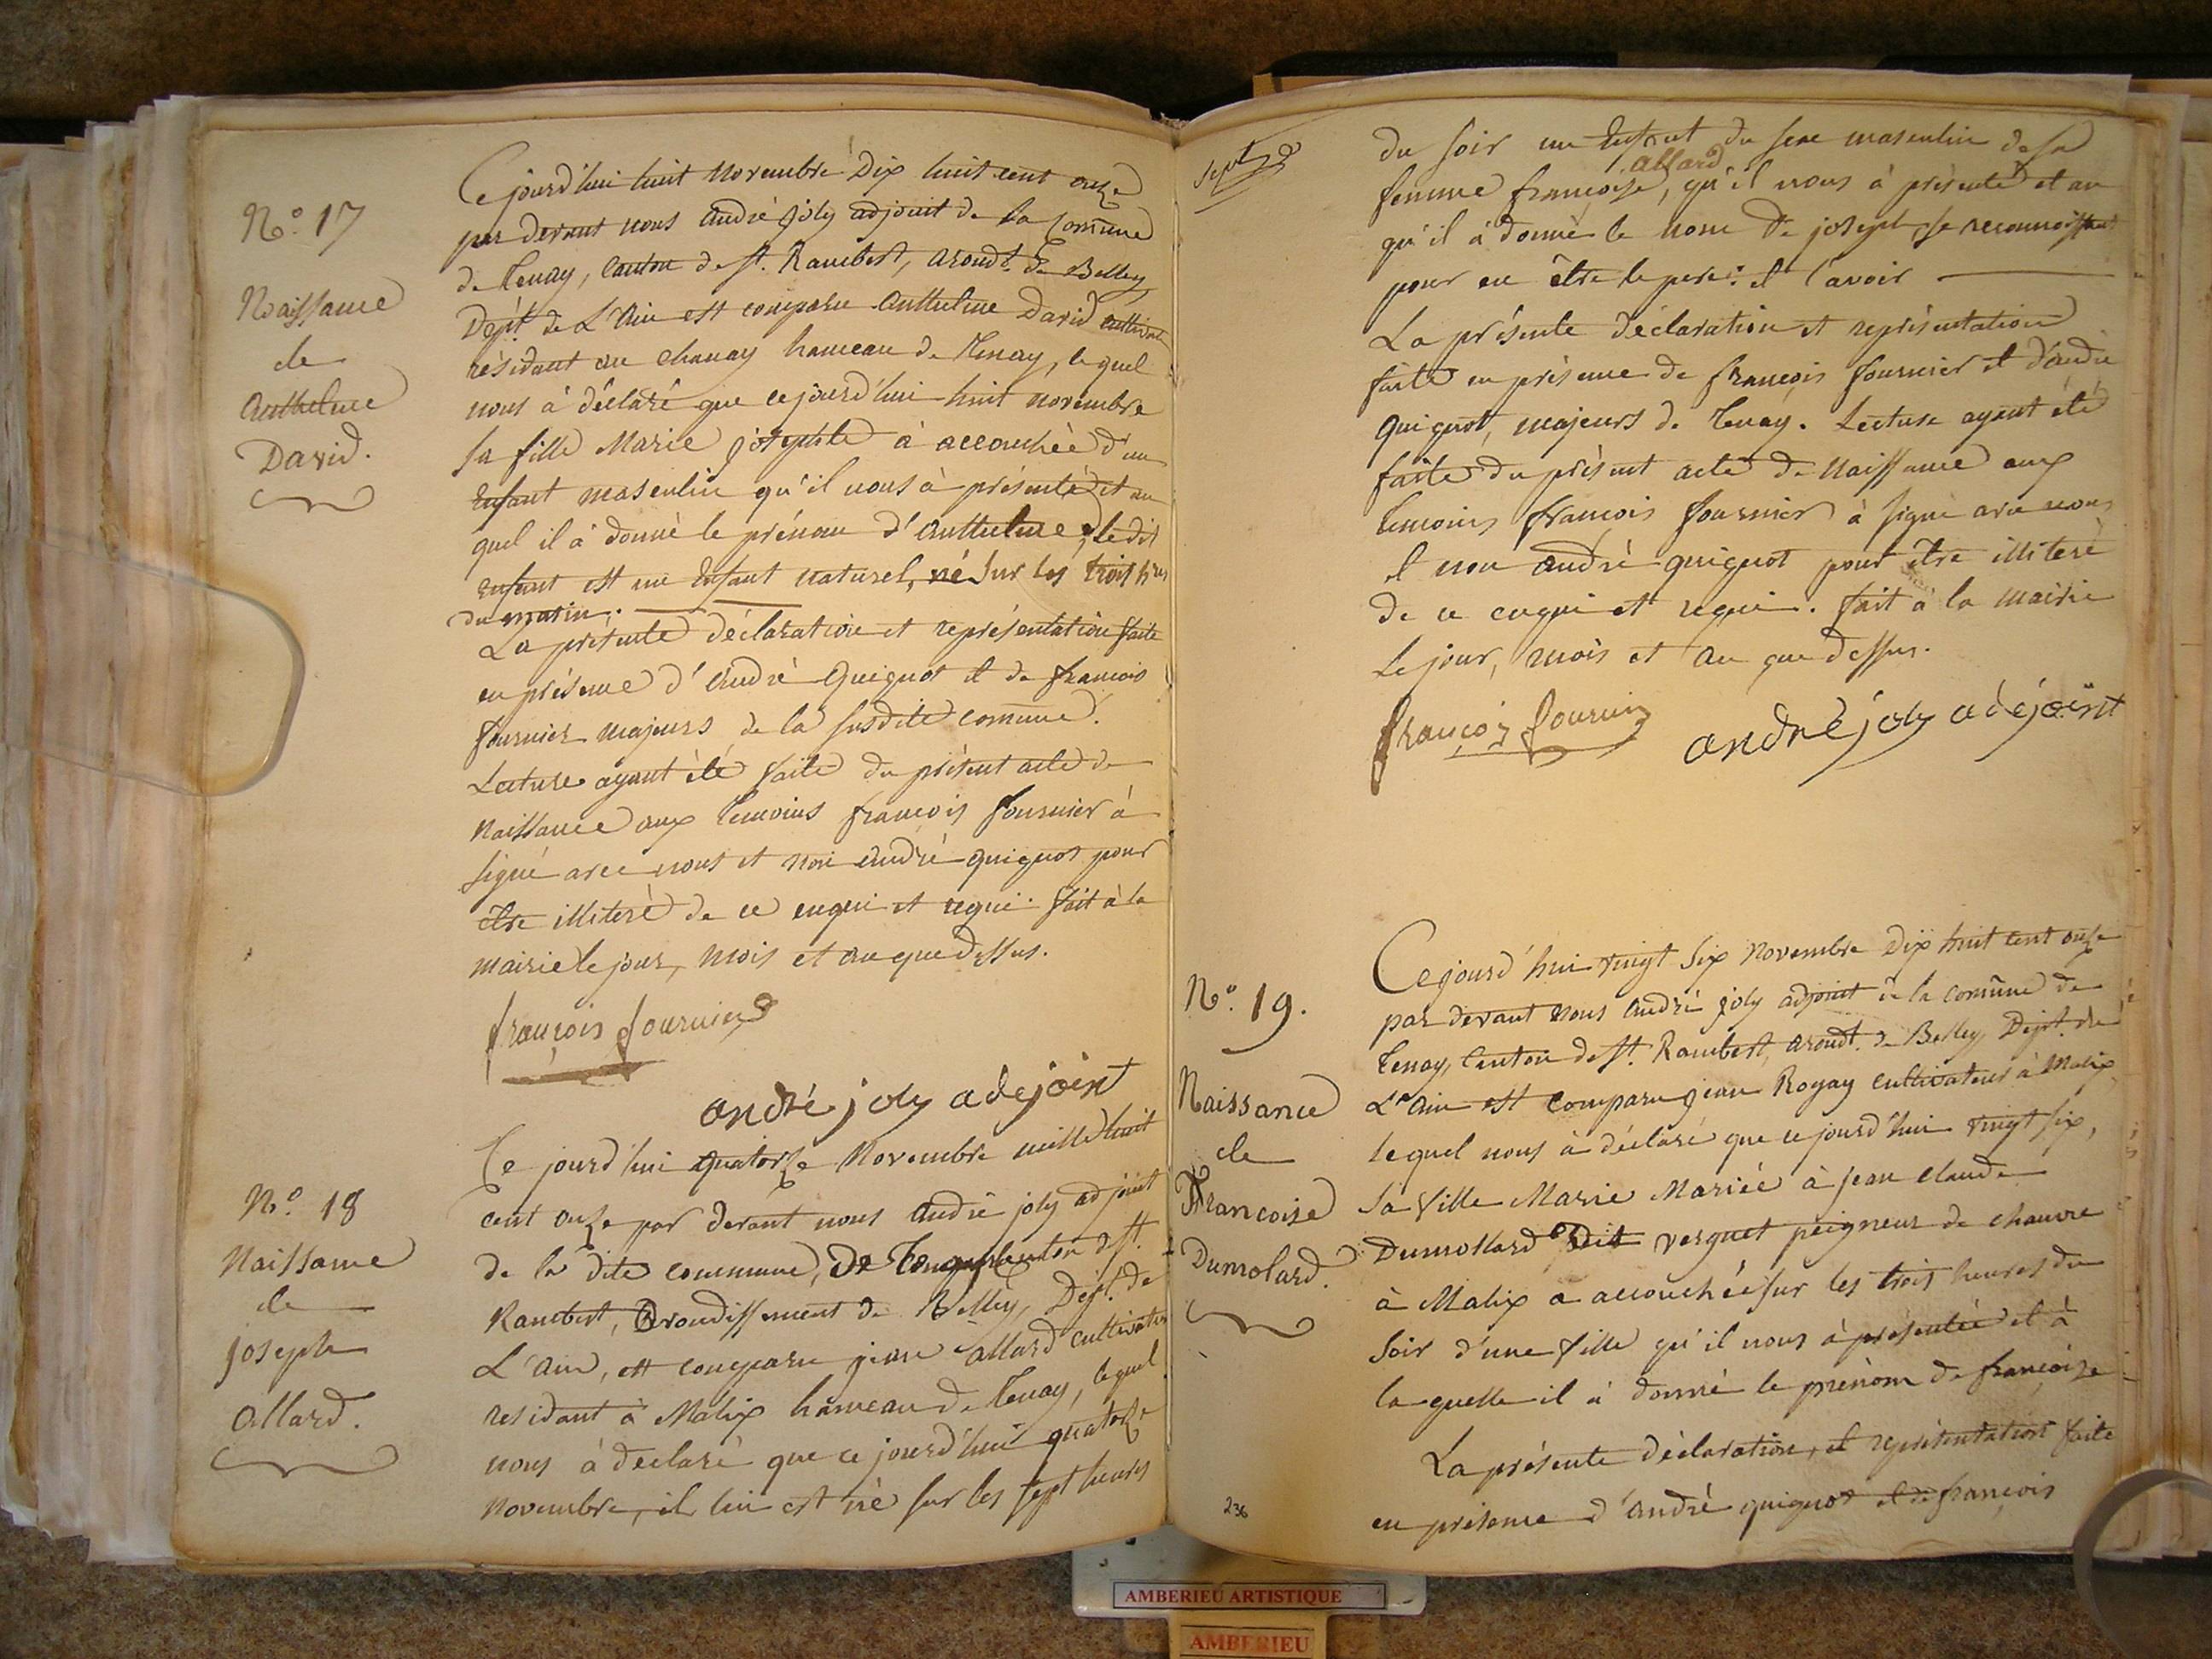 N.o 17
Naissance
de
Anthelme
David.
Ce jourd'hui huit Novembre Dix huit cent onze
par devant nous André joly adjoint de la Comũne
de Tenay, Canton de St. Rambert, arondt. de Belley
Dept. de L'Ain est comparu Anthelme David cultivat
résidant au chanay hameau de Tenay, le quel
nous à déclaré que ce jourd'hui huit novembre
sa fille Marie josephte à accouchée d'un
Enfant masculin qu'il nous à présenté et au
quel il à donné le prénom d'anthelme, le dit
enfant est un Enfant naturel, né sur les trois hres
du matin.
La présente déclaration et représentation faite
en présence d'André Guignot et de françois
fournier majeurs de la susdite comũne.
Lecture ayant été faite du présent acte de
Naissance aux temoins françois fournier à
signé avec nous et non André guignot pour
être illiteré de ce enqui et requi. fait à la
mairie le jour, mois et an que dessus.
françois fournier
andré joly adejoint
N.o 18
Naissance
de
joseph
allard.
Ce jourd'hui quatorze Novembre mille huit
cent onze par devant nous André joly adjoint
de la dite commune, De Tenay canton de St.
Rambert, Arondissement de Belley, Dept. de
L'Ain, est comparu jean allard cultivateur
residant à Malix hameau de Tenay, lequel
nous à déclaré que ce jourd'hui quatorze
novembre, il lui est né sur les sept heures
du soir un Enfant du sexe masculin de sa
allard
femme françoise, qu'il nous à présenté et au
qu'il à donné le nom de joseph se reconnoissant
pour en être le pere: et l'avoir
La présente déclaration et représentation
faite en présence de françois fournier et d'andré
Guignot, majeurs de Tenay. Lecture ayant été
faite du présent acte de Naissance aux
temoins françois fournier à signé avec nous
et non André guignot pour être illiteré
de ce enqui et requi. fait à la Mairie
Le jour, mois et an que dessus.
françois fournier
andré joly adejoint
N.o 19.
Naissance
de
Francoise
Dumolard.
Ce jourd'hui vingt six Novembre Dix huit cent onze
par devant nous André joly adjoint de la comũne de
Tenay, Canton de St. Rambert, arondt. de Belley, Dept. de
L'Ain est comparu jean Rogay cultivateur à Malix
lequel nous à déclaré que ce jourd'hui vingt six,
sa fille Marie Mariée à jean claude
Dumollard Dit verguet peigneur de chanvre
à Malix a accouchée sur les trois heures du
soir d'une fille qu'il nous à présentée et à
la quelle il à donné le prénom de françoise
La présente déclaration, et représentation faite
en présence d'André guignot et de françois
236
AMBERIEU ARTISTIQUE
AMBERIEU